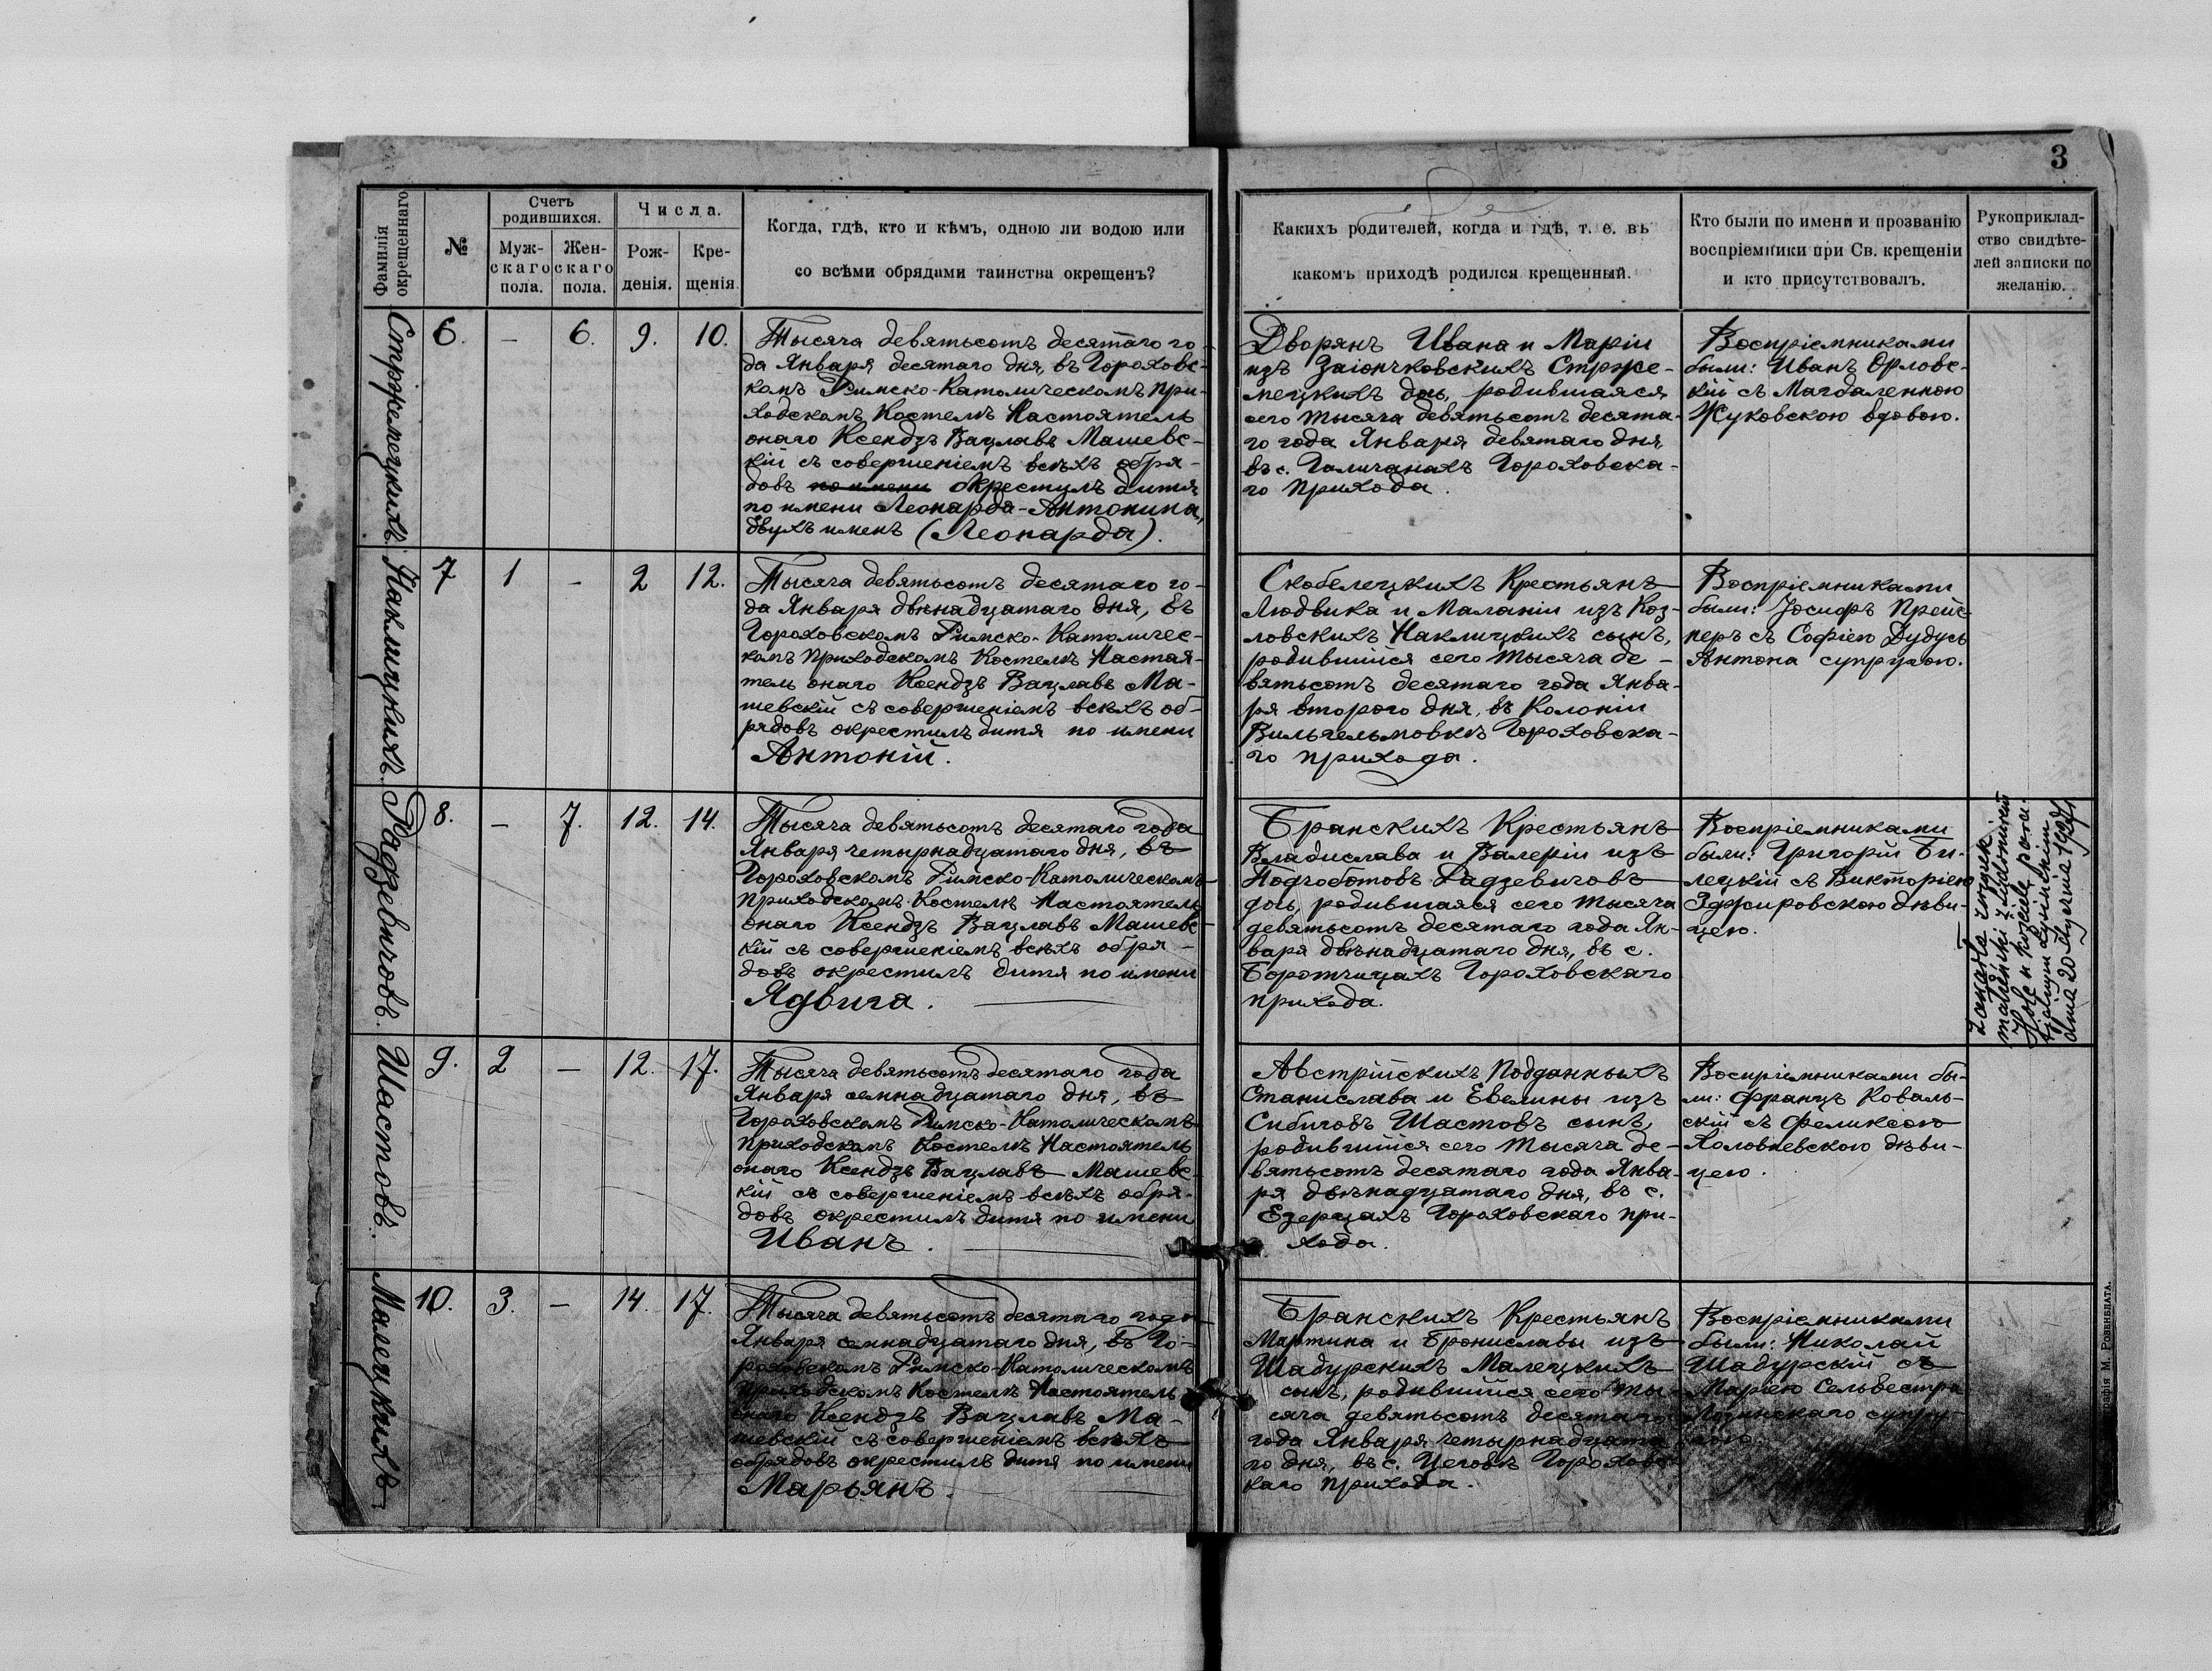 3
Фамилія окрещеннаго
№
Счетъ родившихся.
Муж-скаго пола.
Жен-скаго пола.
Числа.
Рож-денія.
Кре-щенія.
Когда, гдѣ, кто и кѣмъ, одною ли водою или
со всѣми обрядами таинства окрещенъ?
Какихъ родителей, когда и гдѣ, т. е. въ
какомъ приходѣ родился крещенный.
Кто были по имени и прозванію
воспріемники при Св. крещеніи
и кто присутствовалъ.
Рукоприклад-
ство свидѣте-
лей записки по
желанію.
Стржемецкихъ.
6. – 6. 9. 10.
Тысяча девятьсотъ десятаго го-
да Января десятаго дня, въ Гороховс-
комъ Римско-Католическомъ при-
ходскомъ Костелѣ Настоятель
онаго Ксендзъ Вацлавъ Машевс-
кій съ совершеніемъ всѣхъ обря-
довъ по имени окрестилъ дитя
по имени Леонарда-Антонина,
двухъ именъ (Леонарда).
Дворянъ Ивана и Маріи
изъ Заіончковскихъ Стрже-
мецкихъ дочь, родившаяся
сего тысяча девятьсотъ десята-
го года Января девятаго дня,
въ с. Галичанахъ Гороховска-
го прихода.
Воспріемниками
были: Иванъ Орловс-
кій съ Магдаленною
Жуковскою вдовою.
Наклицкихъ.
7 1 – 2 12.
Тысяча девятьсотъ десятаго го-
да Января двѣнадцатаго дня, въ
Гороховскомъ Римско-Католичес-
комъ Приходскомъ Костелѣ Настоя-
тель онаго Ксендзъ Вацлавъ Ма-
шевскій съ совершеніемъ всѣхъ об-
рядовъ окрестилъ дитя по имени
Антоній.
Скобелецкихъ Крестьянъ
Людвика и Маланіи изъ Коз-
ловскихъ Наклицкихъ сынъ,
родившійся сего тысяча де-
вятьсотъ десятаго года Янва-
ря второго дня, въ Колоніи
Вильгельмовкѣ Гороховска-
го прихода.
Воспріемниками
были: Іосифъ Прейс-
неръ съ Софіею Дудусь
Антона супругою.
Радзевичовъ.
8. – 7. 12. 14.
Тысяча девятьсотъ десятаго года
Января четырнадцатаго дня, въ
Гороховскомъ Римско-Католическомъ
Приходскомъ Костелѣ Настоятель
онаго Ксендзъ Вацлавъ Машевс-
кій съ совершеніемъ всѣхъ обря-
довъ окрестилъ дитя по имени
Ядвига.
Бранскихъ Крестьянъ
Владислава и Валеріи изъ
Подчоботовъ Радзевичовъ
дочь, родившаяся сего тысяча
девятьсотъ десятаго года Ян-
варя двѣнадцатаго дня, въ с.
Боротчицахъ Гороховскаго
прихода.
Воспріемниками
были: Григорій Би-
лецкій съ Викторіею
Здфировскою дѣви-
цею.
Zawarła związek
małżeński z Ludwikiem
w kościele para-
fjalnym
dnia 20 stycznia
Шастовъ.
9. 2 – 12. 17.
Тысяча девятьсотъ десятаго года
Января семнадцатаго дня, въ
Гороховскомъ Римско-Католическомъ
Приходскомъ Костелѣ Настоятель
онаго Ксендзъ Вацлавъ Машевс-
кій съ совершеніемъ всѣхъ обря-
довъ окрестилъ дитя по имени
Иванъ.
Австрійскихъ Подданныхъ
Станислава и Евелины изъ
Сибиговъ Шастовъ сынъ,
родившійся сего тысяча де-
вятьсотъ десятаго года Янва-
ря двѣнадцатаго дня, въ с.
Езерцахъ Гороховскаго при-
хода.
Воспріемниками бы-
ли: Францъ Коваль-
скій съ Феликсою
Холовневскою дѣви-
цею.
Малецкихъ
10. 3. – 14. 17.
Тысяча девятьсотъ десятаго года
Января семнадцатаго дня, въ Го-
роховскомъ Римско-Католическомъ
Приходскомъ Костелѣ Настоятель
онаго Ксендзъ Вацлавъ Ма-
шевскій съ совершеніемъ всѣхъ
обрядовъ окрестилъ дитя по имени
Марьянъ.
Бранскихъ Крестьянъ
Мартина и Брониславы изъ
Шадурскихъ Малецкихъ
сынъ, родившійся сего ты-
сяча девятьсотъ десятаго
года Января четырнадцата-
го дня, въ с. Цеговѣ Гороховс-
каго прихода.
Воспріемниками
были: Николай
Шадурскій съ
Маріею Сельвестра
Лозинскаго супру-
гою.
М. Розенблата.